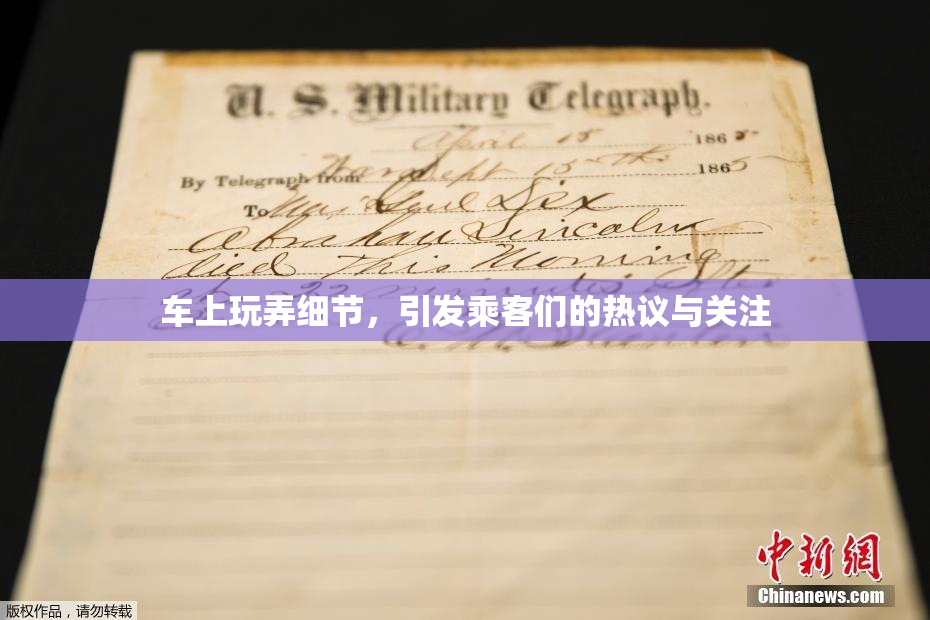 U. S. Military Telegraph.
April 15 1865
By Telegraph from War Dept 15th 1865
To Maj Genl Dix
Abraham Lincoln
died This Morning
at 22 minutes after
车上玩弄细节，引发乘客们的热议与关注
中新网
Chinanews.com
版权作品，请勿转载